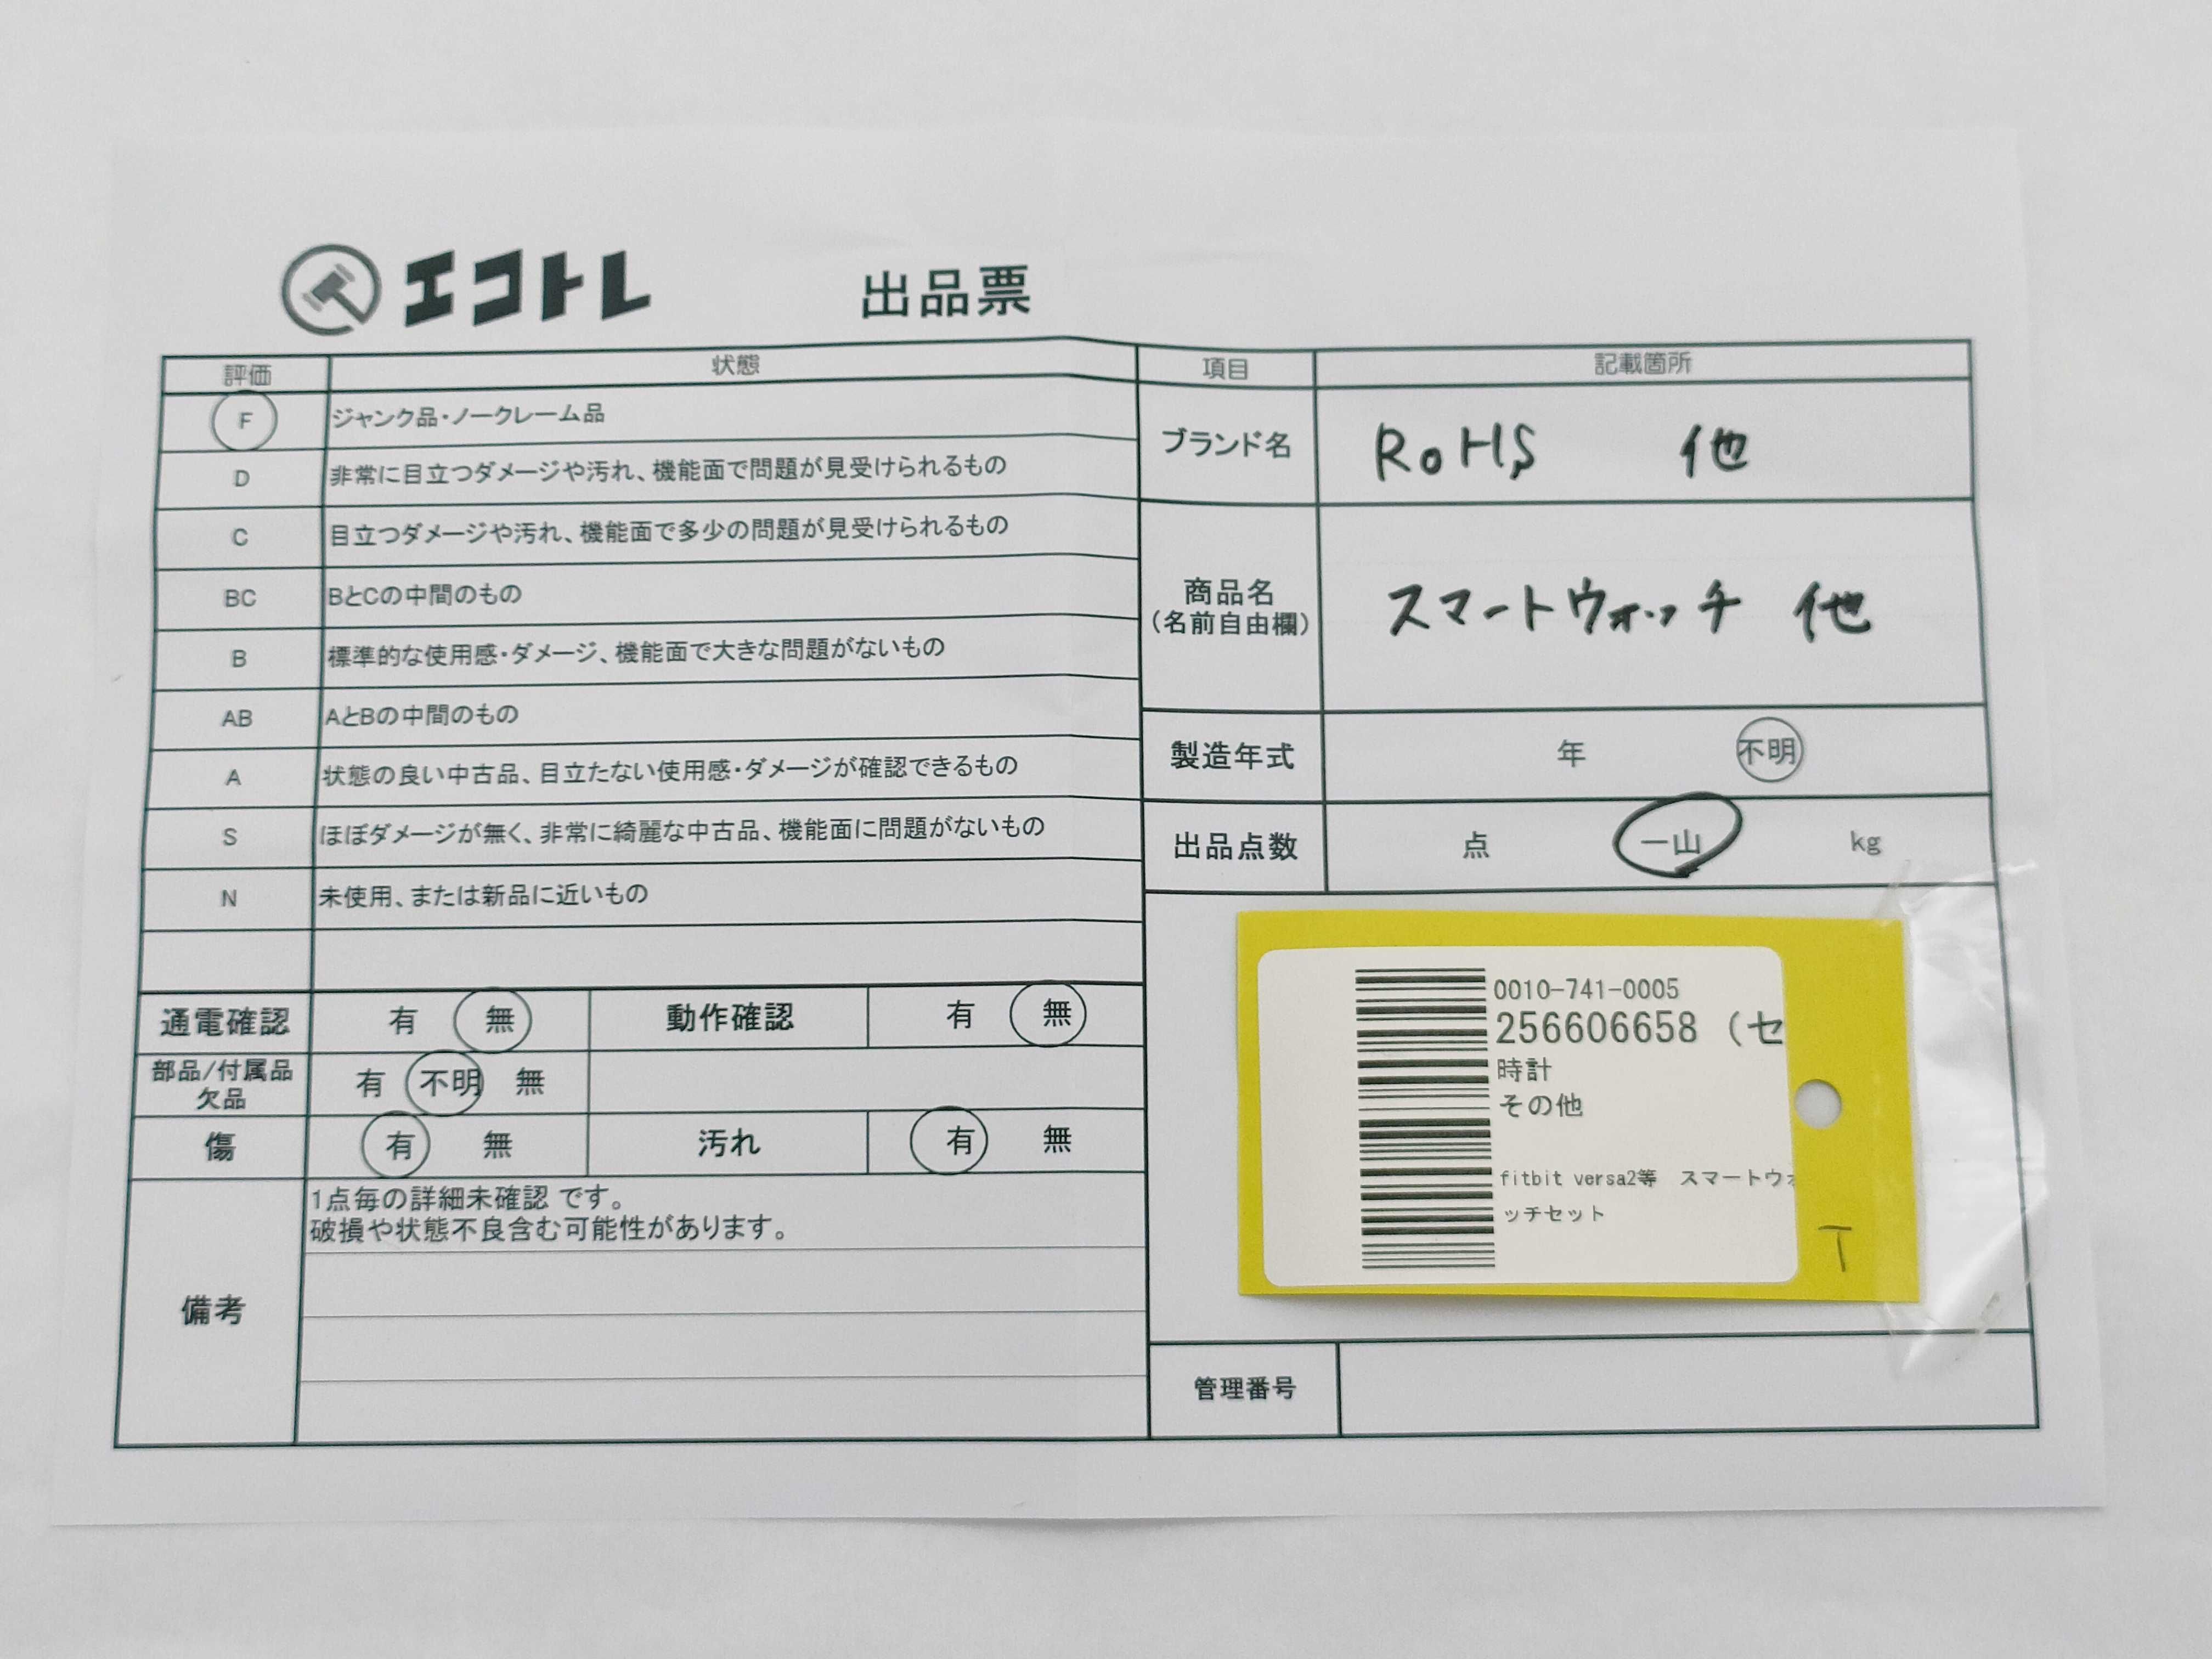 エコトレ 出品票
評価 状態
F ジャンク品・ノークレーム品
D 非常に目立つダメージや汚れ、機能面で問題が見受けられるもの
C 目立つダメージや汚れ、機能面で多少の問題が見受けられるもの
BC BとCの中間のもの
B 標準的な使用感・ダメージ、機能面で大きな問題がないもの
AB AとBの中間のもの
A 状態の良い中古品、目立たない使用感・ダメージが確認できるもの
S ほぼダメージが無く、非常に綺麗な中古品、機能面に問題がないもの
N 未使用、または新品に近いもの
通電確認 有 無 動作確認 有 無
部品/付属品 有 不明 無
欠品
傷 有 無 汚れ 有 無
備考
1点毎の詳細未確認 です。
破損や状態不良含む可能性があります。
項目 記載箇所
ブランド名 RoHS 他
商品名 スマートウォッチ 他
(名前自由欄)
製造年式 年 不明
出品点数 点 一山 kg
0010-741-0005
256606658 (セ
時計
その他
fitbit versa2等 スマートウォ
ッチセット
T
管理番号